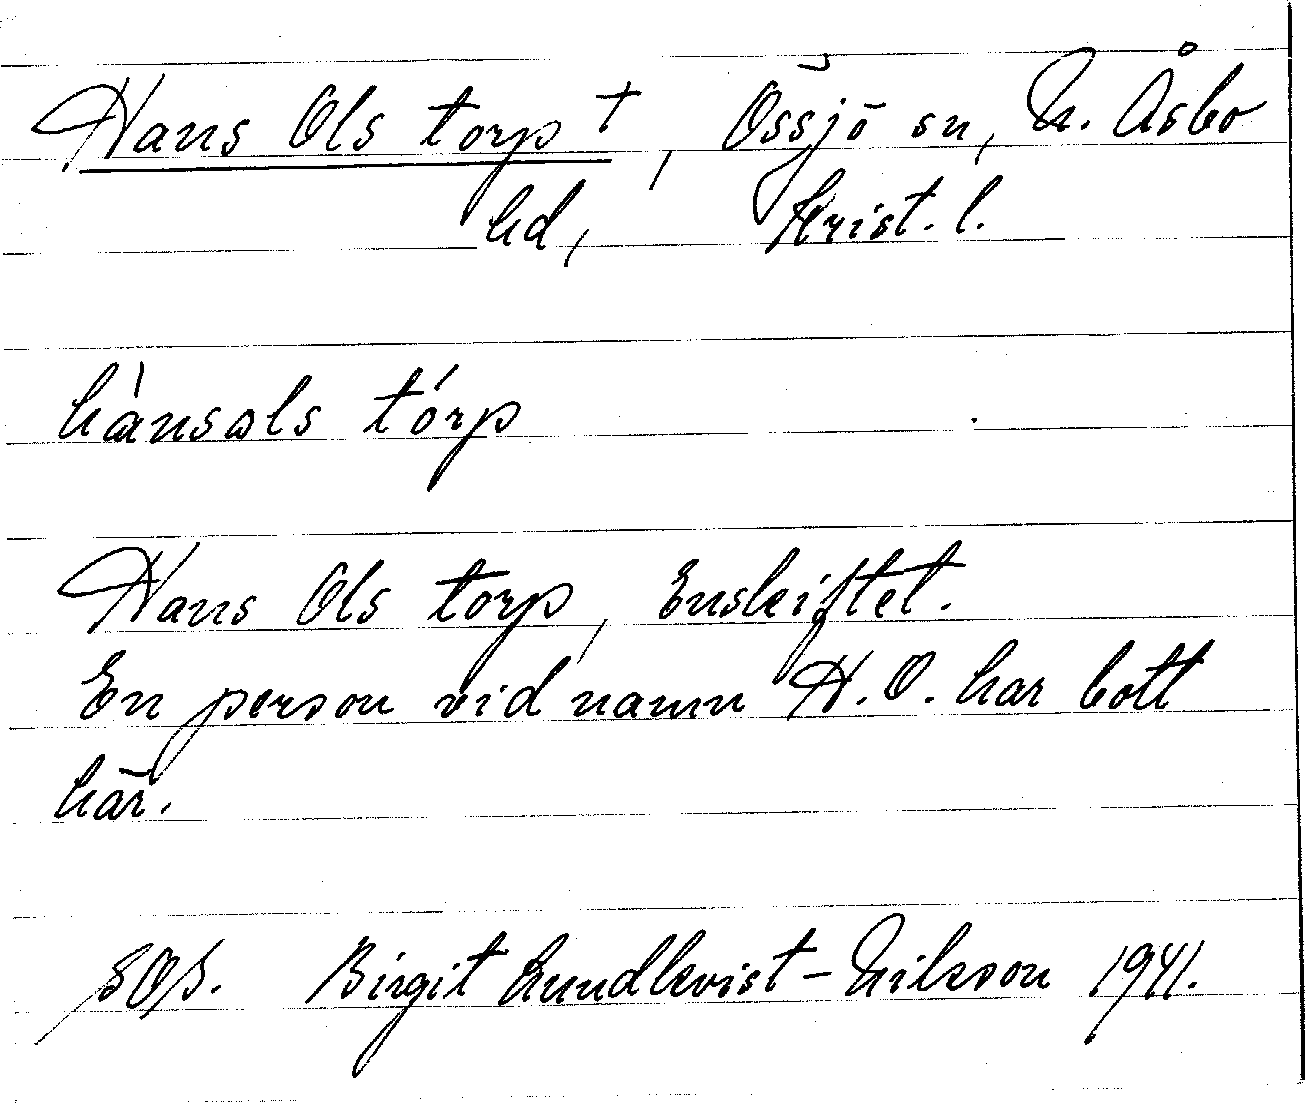 Hans Ols torp †, Össjö sn, N. Åsbo
hd, Krist. l.
hànsɷls tórp
Hans Ols torp, Enskiftet.
En person vid namn H. O. har bott
här.
SOS. Birgit Lundkvist-Nilsson 1941.